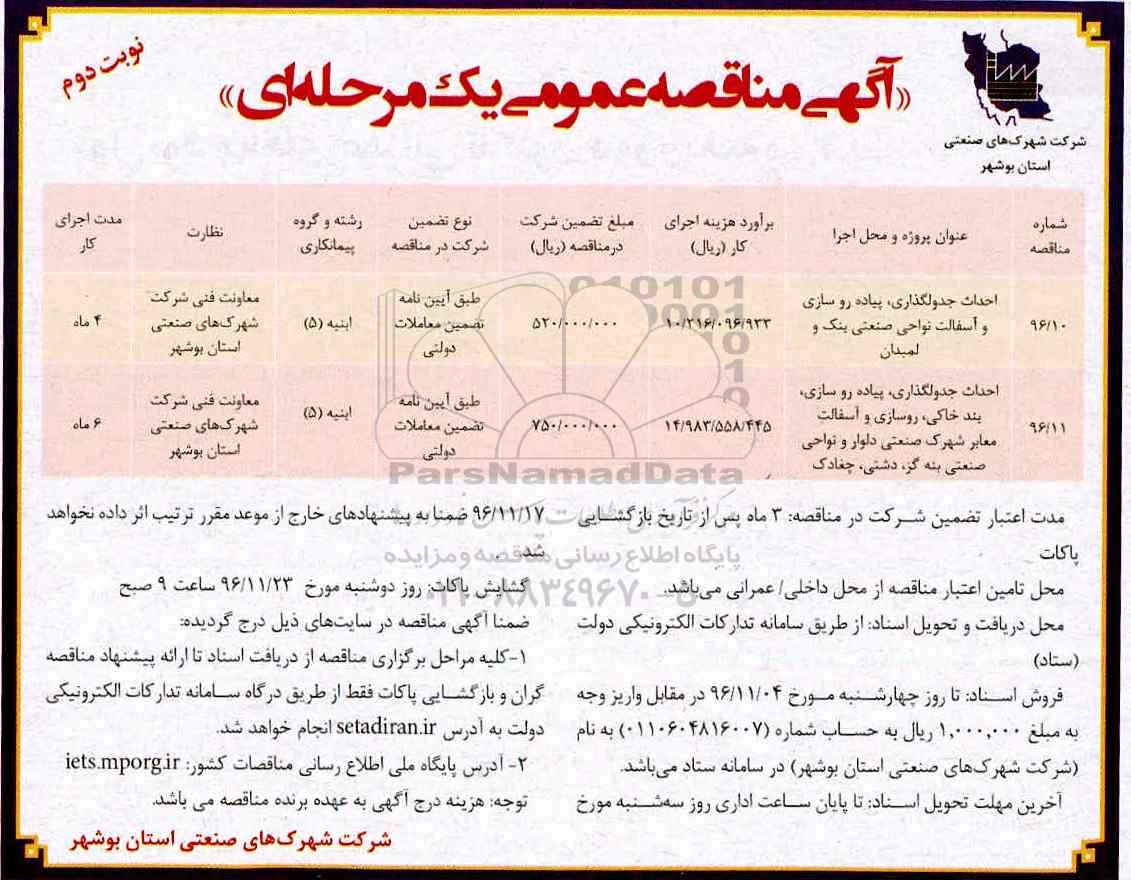 نوبت دوم
«آگهی مناقصه عمومی یک مرحله‌ای»
شرکت شهرک‌های صنعتی
استان بوشهر
شماره مناقصه
عنوان پروژه و محل اجرا
برآورد هزینه اجرای کار (ریال)
مبلغ تضمین شرکت درمناقصه (ریال)
نوع تضمین شرکت در مناقصه
رشته و گروه پیمانکاری
نظارت
مدت اجرای کار
۹۶/۱۰
احداث جدولگذاری، پیاده رو سازی
و آسفالت نواحی صنعتی بنک و
لمبدان
۱۰/۲۱۶/۰۹۶/۹۳۳
۵۲۰/۰۰۰/۰۰۰
طبق آیین نامه
تضمین معاملات
دولتی
ابنیه (۵)
معاونت فنی شرکت
شهرک‌های صنعتی
استان بوشهر
۴ ماه
۹۶/۱۱
احداث جدولگذاری، پیاده رو سازی،
بند خاکی، روسازی و آسفالت
معابر شهرک صنعتی دلوار و نواحی
صنعتی بنه گز، دشتی، چغادک
۱۴/۹۸۳/۵۵۸/۴۴۵
۷۵۰/۰۰۰/۰۰۰
طبق آیین نامه
تضمین معاملات
دولتی
ابنیه (۵)
معاونت فنی شرکت
شهرک‌های صنعتی
استان بوشهر
۶ ماه
ParsNamadData
پایگاه اطلاع رسانی مناقصه و مزایده
۰۲۱-۸۸۳۴۹۶۷۰-۵
مدت اعتبار تضمین شرکت در مناقصه: ۳ ماه پس از تاریخ بازگشایی
پاکات
محل تامین اعتبار مناقصه از محل داخلی/ عمرانی می‌باشد.
محل دریافت و تحویل اسناد: از طریق سامانه تدارکات الکترونیکی دولت
(ستاد)
فروش اسناد: تا روز چهارشنبه مورخ ۹۶/۱۱/۰۴ در مقابل واریز وجه
به مبلغ ۱,۰۰۰,۰۰۰ ریال به حساب شماره (۰۱۱۰۶۰۴۸۱۶۰۰۷) به نام
(شرکت شهرک‌های صنعتی استان بوشهر) در سامانه ستاد می‌باشد.
آخرین مهلت تحویل اسناد: تا پایان ساعت اداری روز سه‌شنبه مورخ
۹۶/۱۱/۱۷ ضمنا به پیشنهادهای خارج از موعد مقرر ترتیب اثر داده نخواهد
شد.
گشایش پاکات: روز دوشنبه مورخ ۹۶/۱۱/۲۳ ساعت ۹ صبح
ضمنا آگهی مناقصه در سایت‌های ذیل درج گردیده:
۱-کلیه مراحل برگزاری مناقصه از دریافت اسناد تا ارائه پیشنهاد مناقصه
گران و بازگشایی پاکات فقط از طریق درگاه سامانه تدارکات الکترونیکی
دولت به آدرس setadiran.ir انجام خواهد شد.
۲- آدرس پایگاه ملی اطلاع رسانی مناقصات کشور: iets.mporg.ir
توجه: هزینه درج آگهی به عهده برنده مناقصه می باشد.
شرکت شهرک‌های صنعتی استان بوشهر